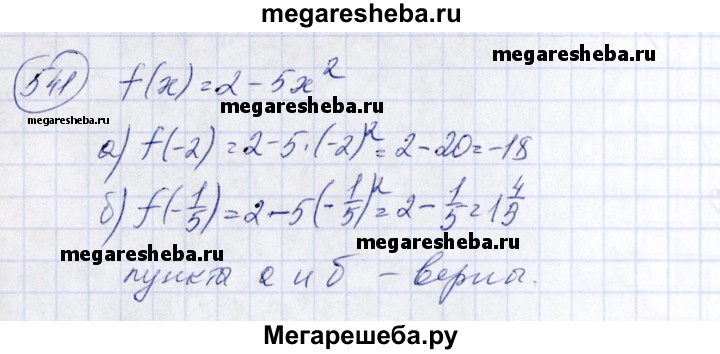 megaresheba.ru
541 f(x) = 2 - 5x²
megaresheba.ru
megaresheba.ru
megaresheba.ru
а) f(-2) = 2 - 5·(-2)² = 2 - 20 = -18
б) f(-1/5) = 2 - 5(-1/5)² = 2 - 1/5 = 1 4/5
megaresheba.ru
megaresheba.ru
пункта а и б - верны.
Мегарешеба.ру